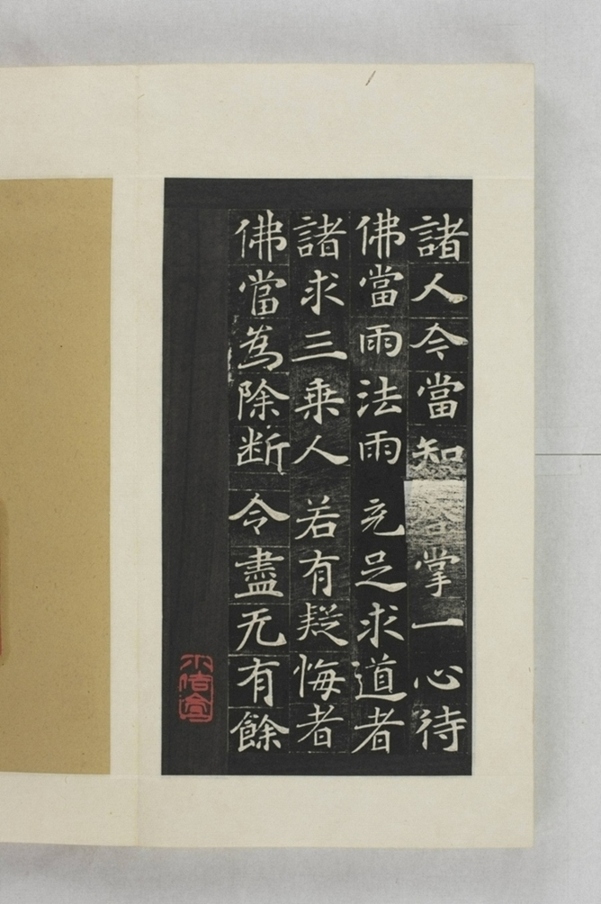 諸人今當知合掌一心待
佛當雨法雨充足求道者
諸求三乗人若有疑悔者
佛當為除断令盡无有餘